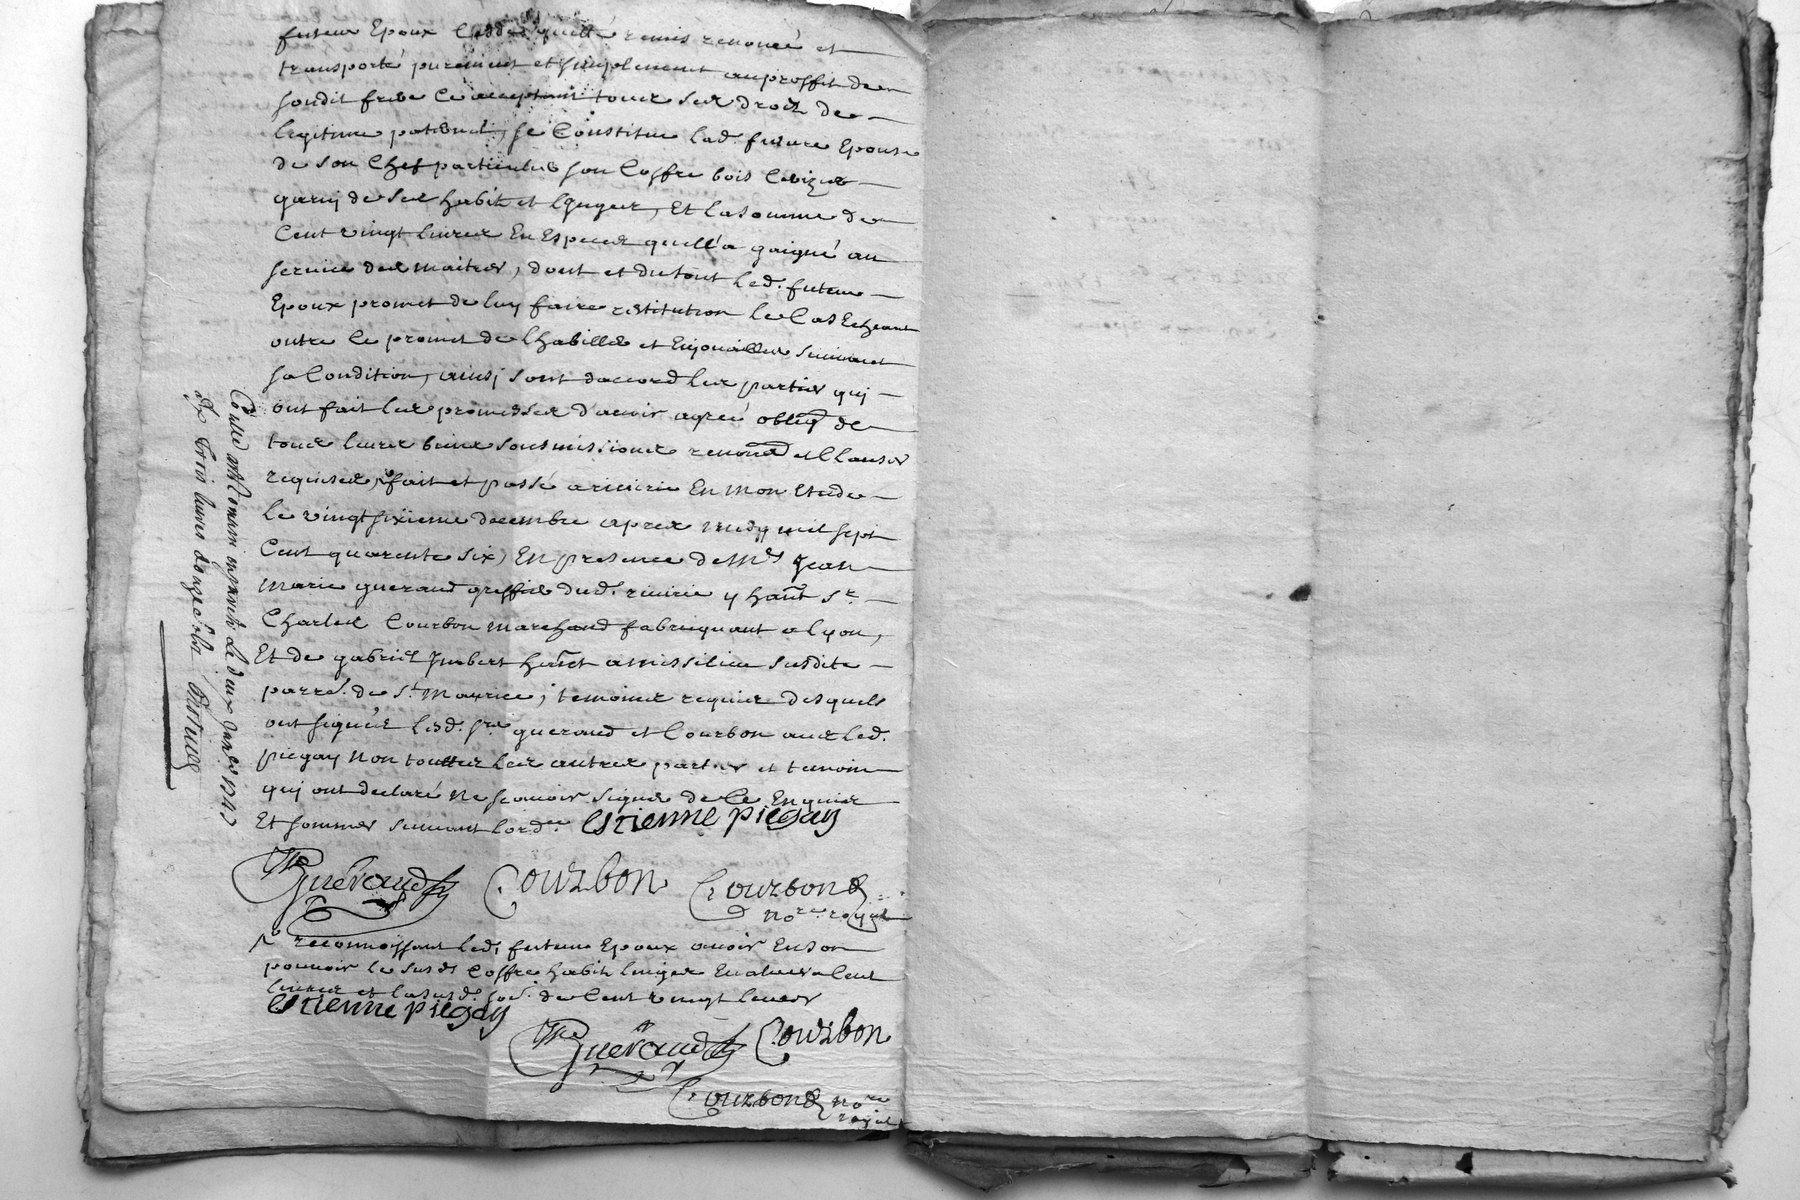 futeur Epoux remis renoncé et
transporté purement et simplement au proffit de
sondit frere ce acceptant tous ses droitz de
legitime paternel, se Constitue lad. future Epouse
de son Chef particulier son Coffre bois Cerizier
garny de ses habitz et lingges, Et la somme de
Cent vingt livres En Especes quell'a gaigné au
service des maitres, dont et du tout led. futeur
Epoux promet de luy faire restitution le Cas Echeant
outre ce promet de lhabiller et Enjoualler suivant
sa Condition, ainsi sont daccord les parties qui
ont fait les promesses d'avoir agreé oblig de
tous leurs biens soumissions renon et Clauses
requises, fait et passé a rivirie En mon Etude
le vingt sixieme decembre apres midy mil sept
Cent quarente six, En presence de Me Jean
marie gueraud greffier dud. rivirie y hant Sr.
Charles Courbon marchand fabriquant a lyon,
Et de gabriel Jmbert hant a missilieu susdite
parre. de St. Maurice, temoins requis desquels
ont signées lesd. Srs gueraud et Courbon avec led.
piegay non touttes les autres parties et temoin
qui ont declaré ne scavoir signer de Ce Enquis
Et sommes suivant lord.ce estienne piegay
Gueraud Courbon Courbon
nore. royal
reconnoissant led. futeur Epoux avoir En son
pouvoir le susd. Coffre habitz linges En valeur Cent
livres et la susd. so. de Cent vingt livres
estienne piegay
Gueraud Courbon
Courbon nore
royal
Conllé a St Maurice le deux Janer 1747
trois livres douze sols